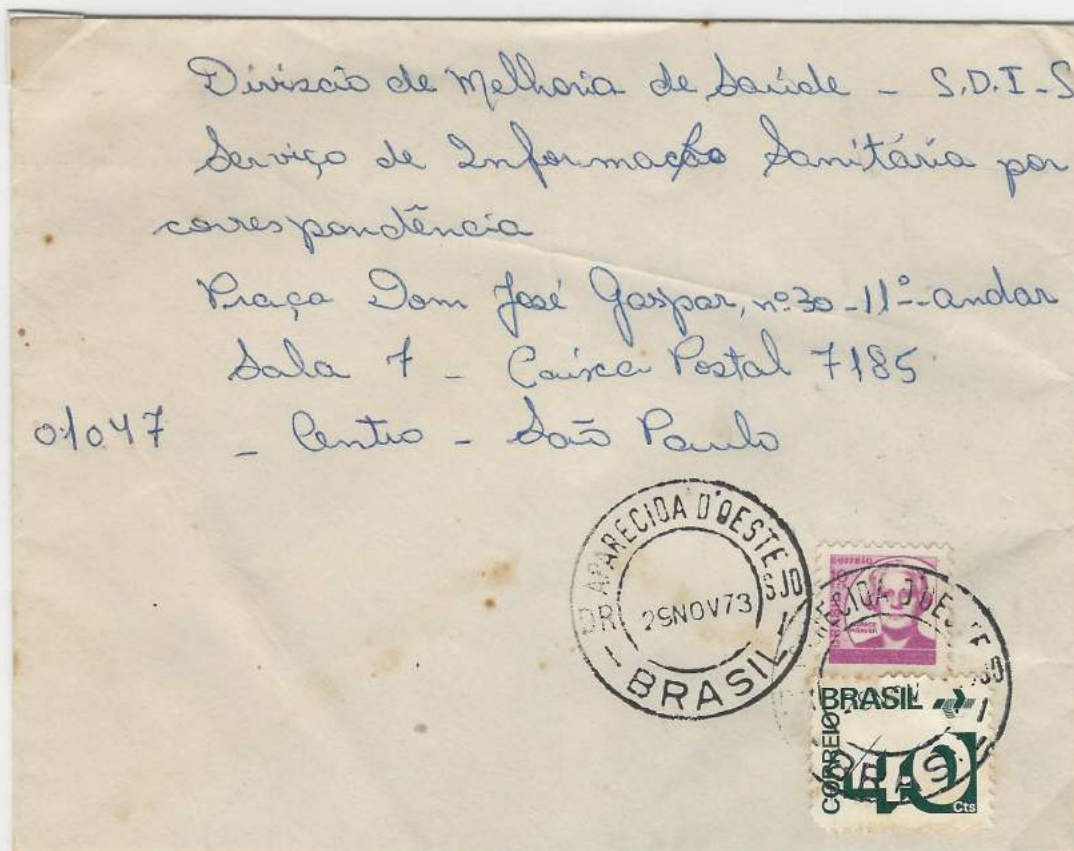 Divisão de Melhoria de Saúde - S.D.I-S
Serviço de Informação Sanitária por
correspondência
Praça Dom José Gaspar, nº 30 - 11º - andar
Sala 7 - Caixa Postal 7185
01047 - Centro - São Paulo
APARECIDA D'OESTE SJO
DR
29NOV73
BRASIL
correio
ECIDA D'OESTE
BRASIL
CORREIO
40
Cts
BRASIL